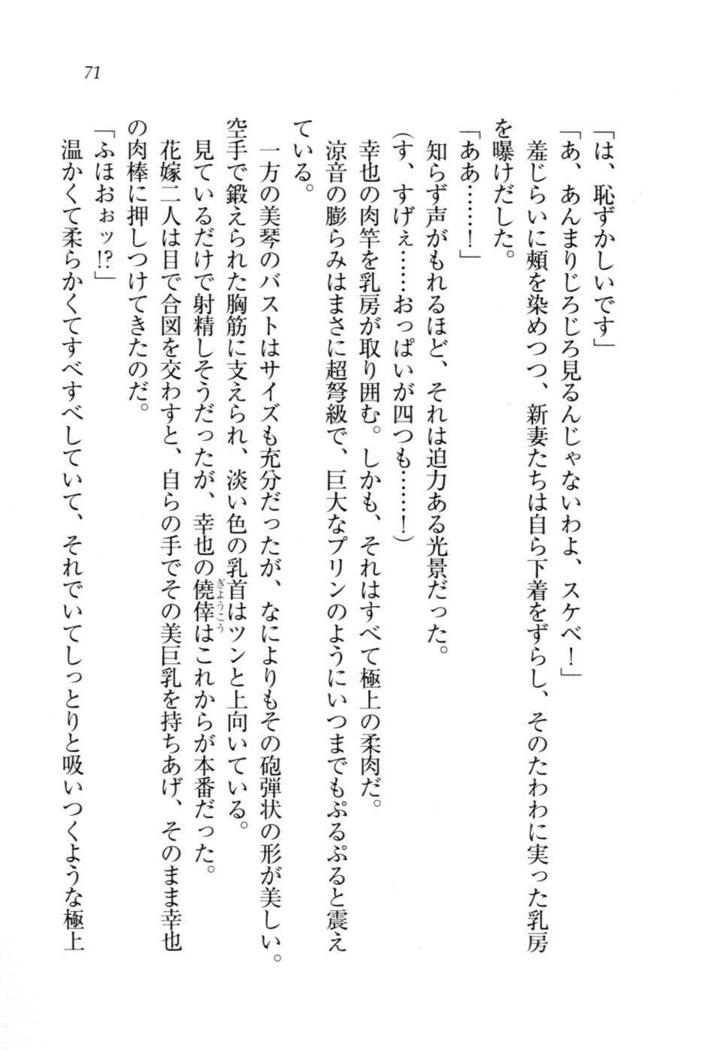 71
「は、恥ずかしいです」
「あ、あんまりじろじろ見るんじゃないわよ、スケベ！」
羞じらいに頰を染めつつ、新妻たちは自ら下着をずらし、そのたわわに実った乳房
を曝けだした。
「ああ……！」
知らず声がもれるほど、それは迫力ある光景だった。
(す、すげぇ……おっぱいが四つも……！)
幸也の肉竿を乳房が取り囲む。しかも、それはすべて極上の柔肉だ。
涼音の膨らみはまさに超弩級で、巨大なプリンのようにいつまでもぷるぷると震え
ている。
一方の美琴のバストはサイズも充分だったが、なによりもその砲弾状の形が美しい。
空手で鍛えられた胸筋に支えられ、淡い色の乳首はツンと上向いている。
見ているだけで射精しそうだったが、幸也の僥倖はこれからが本番だった。
ぎょうこう
花嫁二人は目で合図を交わすと、自らの手でその美巨乳を持ちあげ、そのまま幸也
の肉棒に押しつけてきたのだ。
「ふほおぉッ!?」
温かくて柔らかくてすべすべしていて、それでいてしっとりと吸いつくような極上